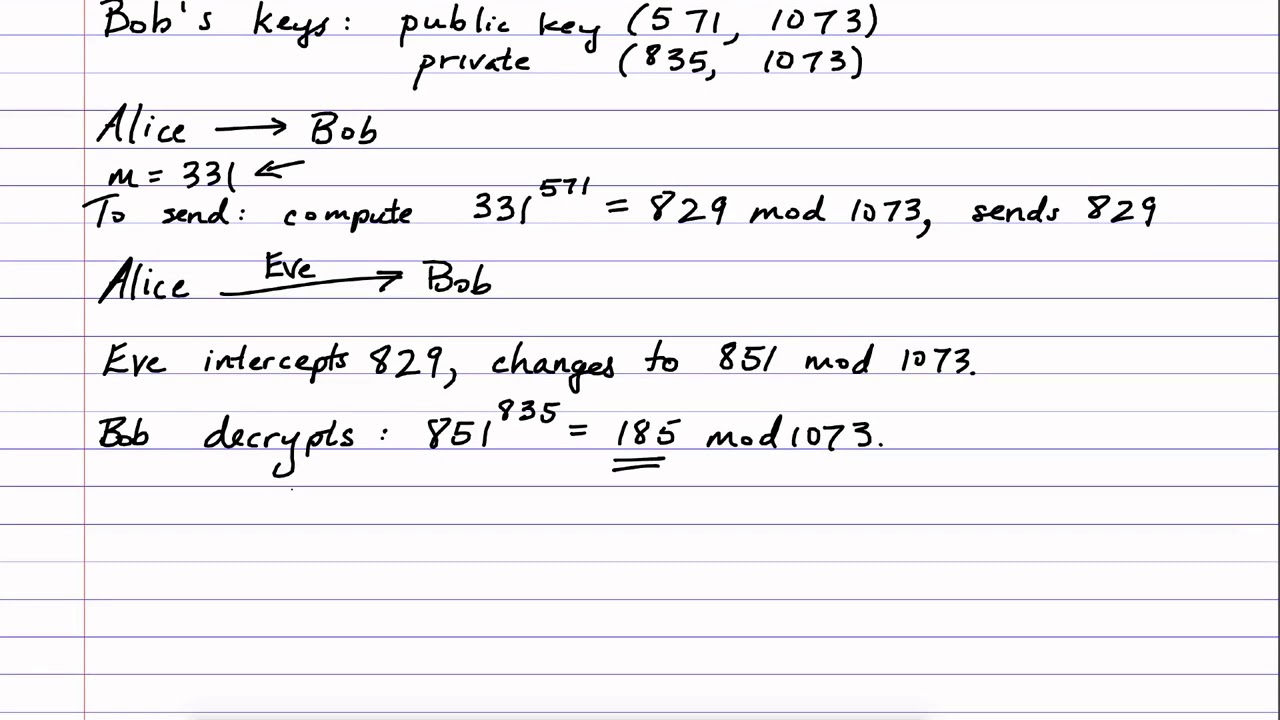 Bob's keys: public key (571, 1073)
private (835, 1073)
Alice → Bob
m = 331 ←
To send: compute 331^571 = 829 mod 1073, sends 829
Eve
Alice → Bob
Eve intercepts 829, changes to 851 mod 1073.
Bob decrypts: 851^835 = 185 mod 1073.